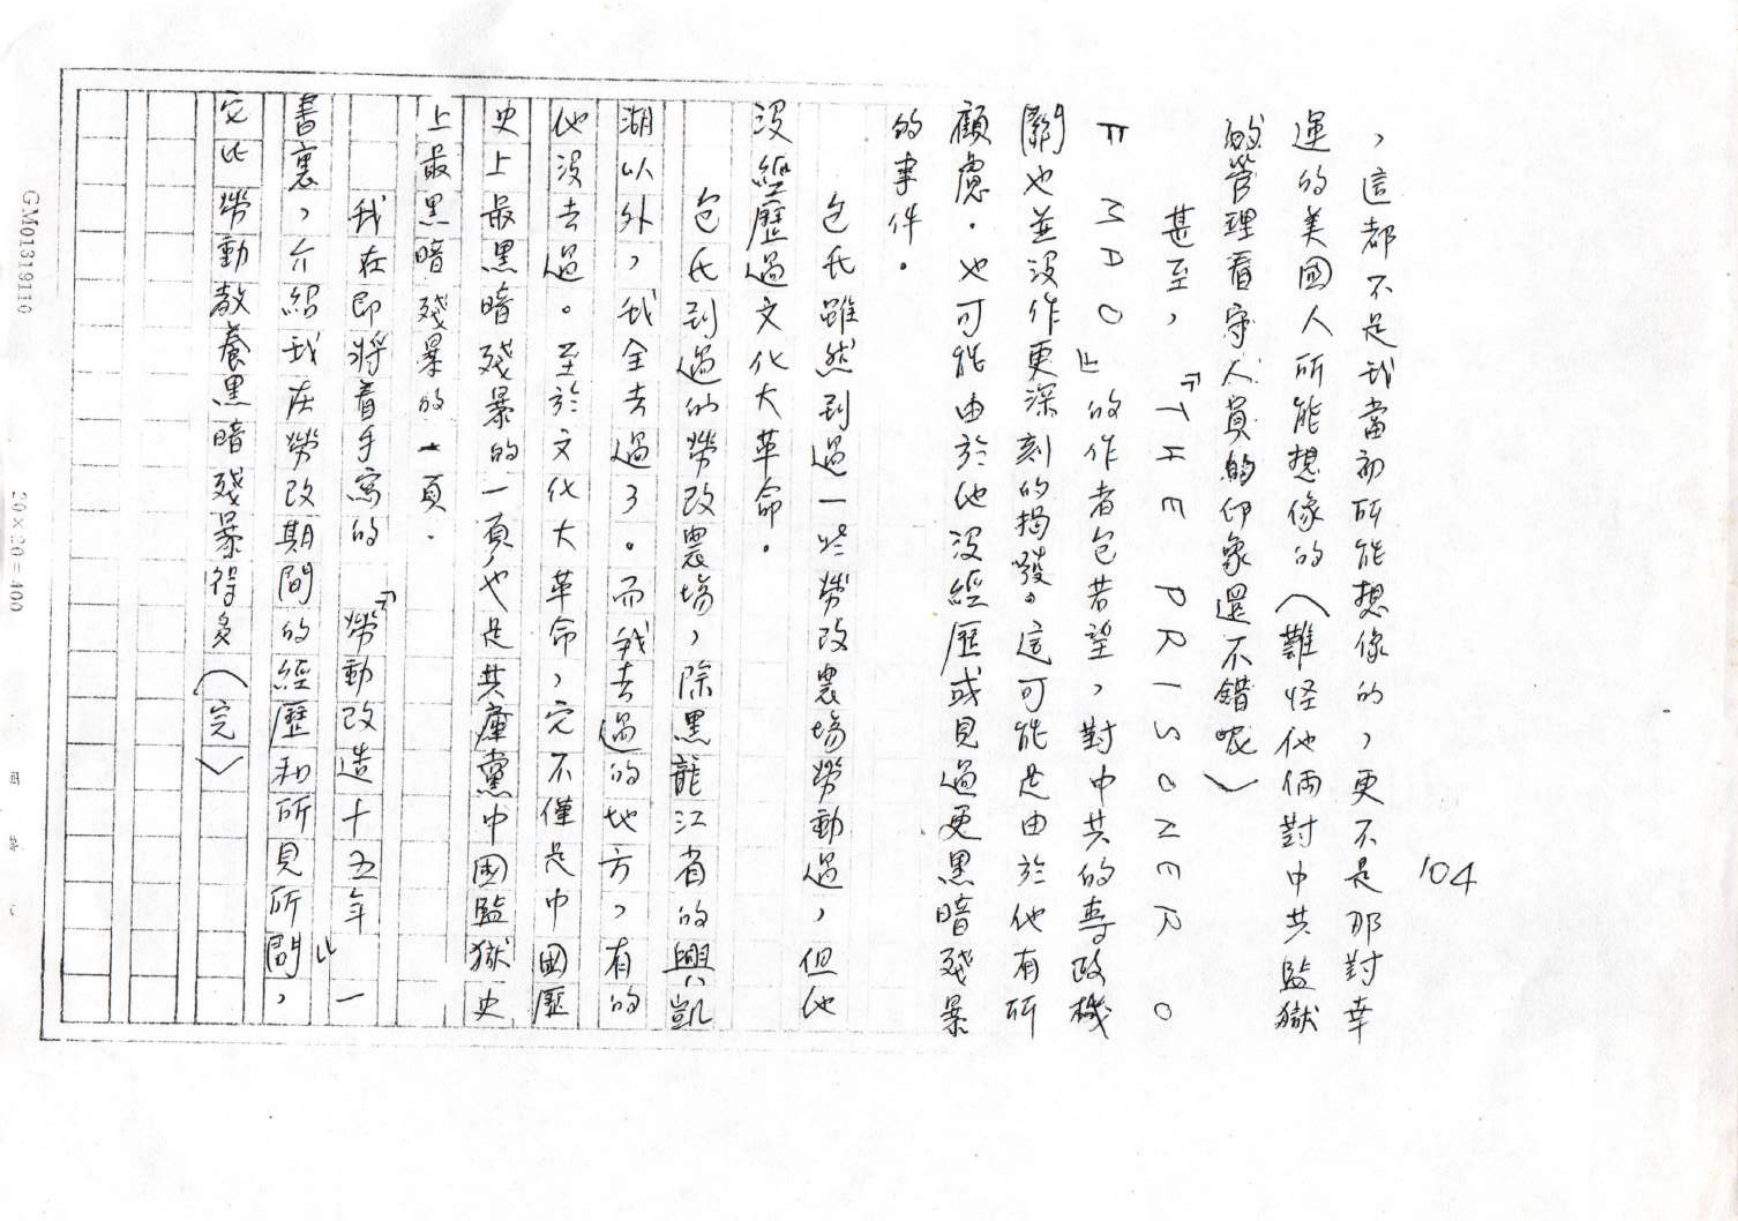 104
，這都不是我當初所能想像的，更不是那對幸
運的美國人所能想像的（難怪他倆對中共監獄
的管理看守人員的印象還不錯呢）
甚至，『THE PRISONER O
F MAO』的作者包若望，對中共的專政機
關也並沒作更深刻的揭發。這可能是由於他有所
顧慮．也可能由於他沒經歷或見過更黑暗殘暴
的事件。
包氏雖然到過一些勞改農場勞動過，但他
沒經歷過文化大革命。
包氏到過的勞改農場，除黑龍江省的興凱
湖以外，我全去過了。而我去過的地方，有的
他沒去過。至於文化大革命，完不僅是中國歷
史上最黑暗殘暴的一頁，也是共產黨中國監獄史
上最黑暗殘暴的一頁．
我在即將着手寫的『勞動改造十五年』一
書裏，介紹我在勞改期間的經歷和所見所聞，
它比勞動教養黑暗殘暴得多（完）
GM01319110
20×20=400